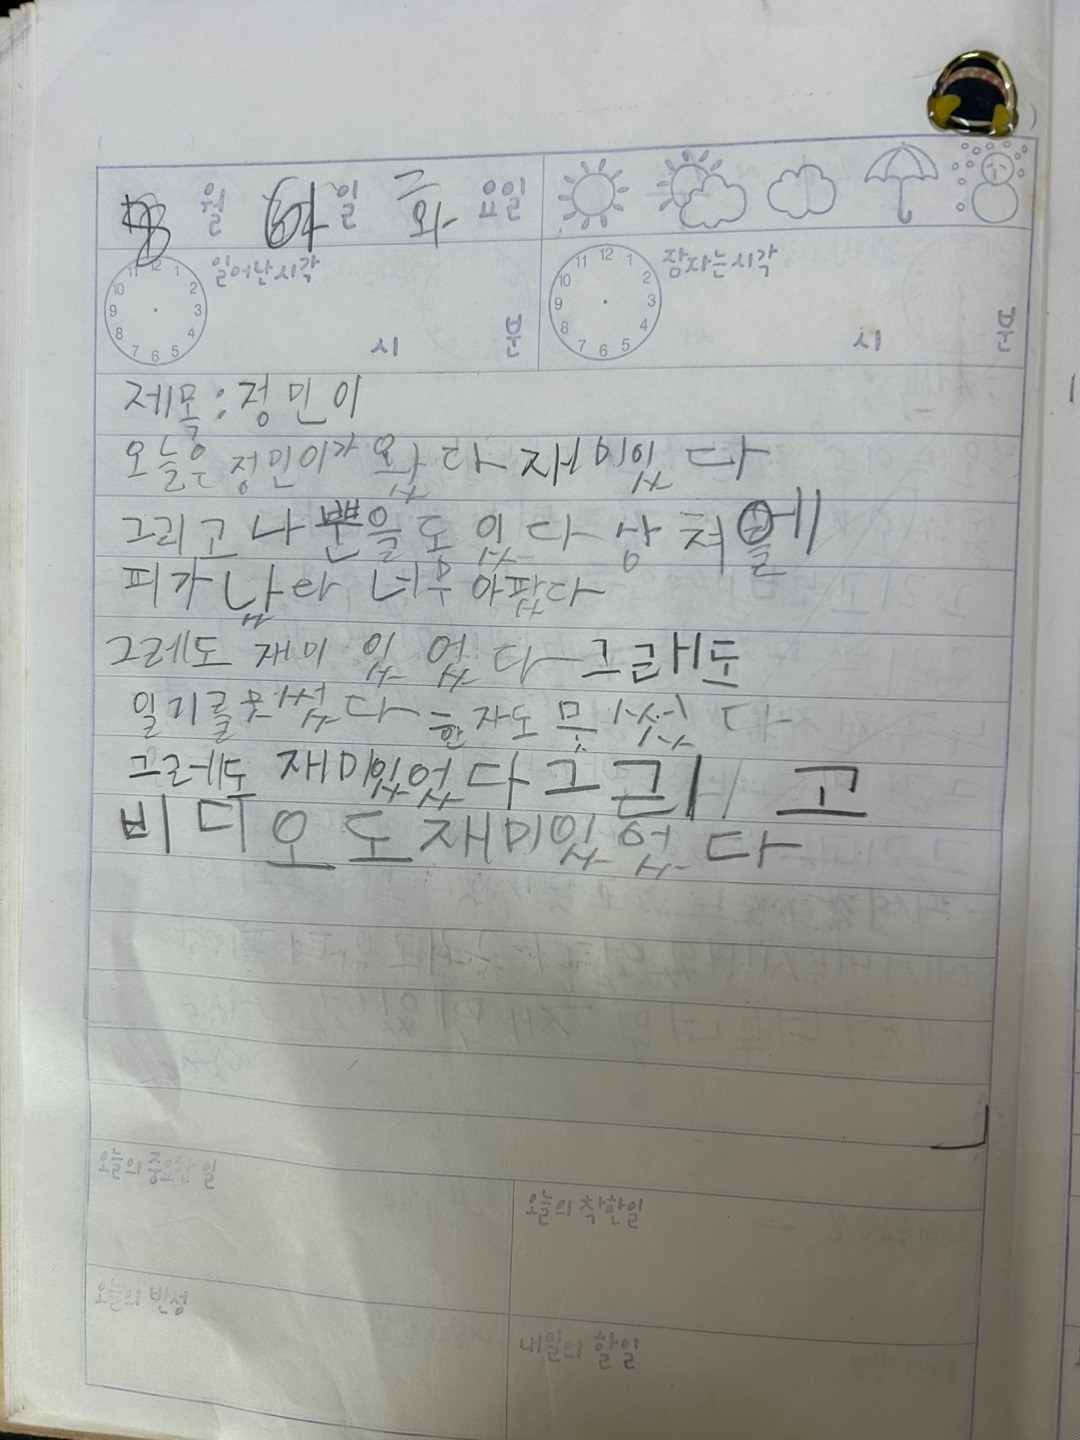 월 일 화 요일
일어난시각 잠자는시각
11 12 1 10 2 9 3 8 4 7 6 5
11 12 1 10 2 9 3 8 4 7 6 5
시 분 시 분
제목:정민이
오늘은 정민이가 왔다 재미있다
그리고 나 뿐을도 있다 상처에
피가 났타 너무 아팠다
그레도 재미 있 었 다 그래도
일기를못썼다 한자도 못 썼 다
그레도 재미있었다 그 래 고
비 디 오 도 재미있 었 다
오늘의 중요한 일
오늘의 착한일
오늘의 반성
내일의 할일